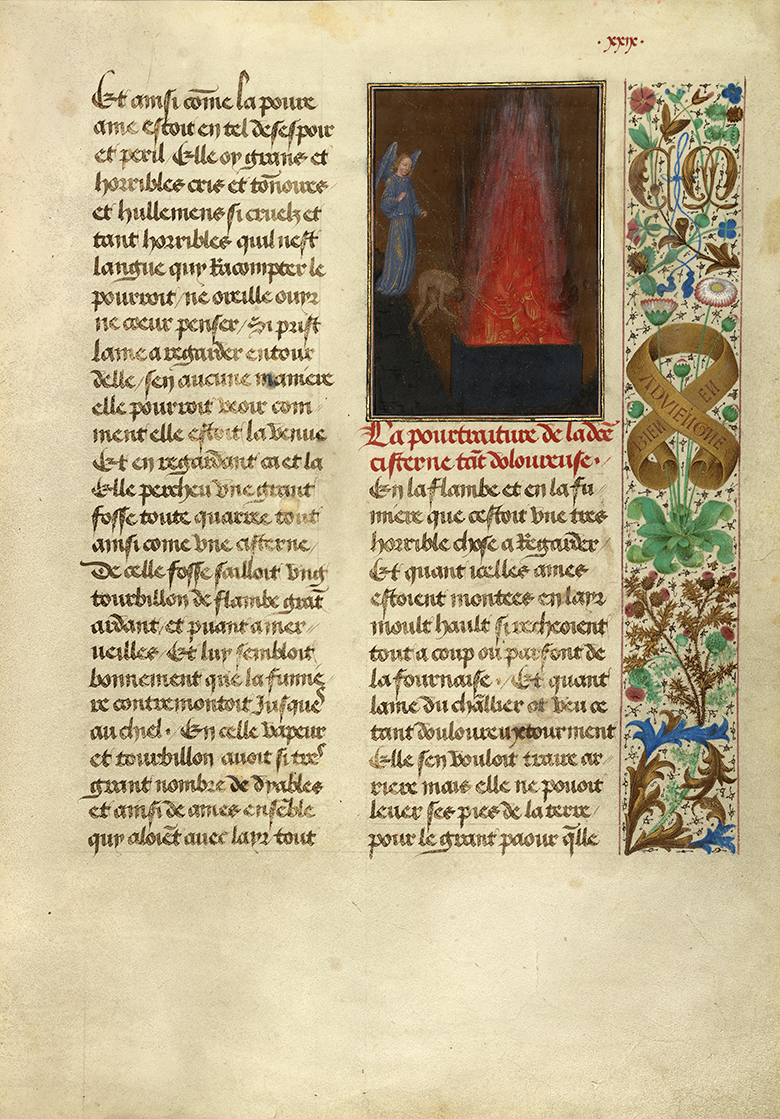 ·xxix·
Et ainsi cōme la poure
ame estoit en tel desespoir
et peril / Elle oy grans et
horribles cris et tōnoires /
et hullemens si cruelz et
tant horribles quil nest
langue quy Racompter le
pourroit / ne oreille ouyr
ne coeur penser / Si prist
lame a regarder entour
delle / sen aucune maniere
elle pourroit veoir com-
ment elle estoit la venue
Et en regardant ca et la
Elle percheu vne grant
fosse toute quarree tout
ainsi come vne cisterne /
De celle fosse sailloit vng
tourbillon de flambe grāt
ardant / et puant a mer-
veilles / Et luy sembloit
bonnement que la fumie-
re contremontoit Jusques
au chiel · En celle vapeur
et tourbillon auoit si tres
grant nombre de dyables
et ainsi de ames ensēble
quy aloiēt auec layr tout
La pourtraiture de la dcē
cisterne tāt doloureuse ·
En la flambe et en la fu-
miere que cestoit vne tres
horrible chose a Regarder /
Et quant icelles ames
estoient montees en layr
moult hault si recheoient
tout a coup ou parfont de
la fournaise · / Et quant
lame du chāllier ot veu ce
tant douloureux tourment
Elle sen vouloit traire ar-
riere mais elle ne pouoit
leuer ses pies de la terre /
pour le grant paour q̄lle
CM
BIEN EN
ADVIENGNE